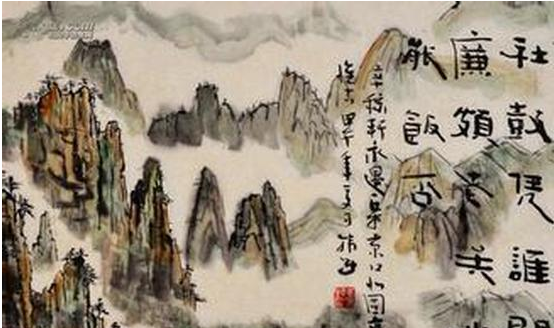 社鼓凭誰
廉頗老矣
能飯否
辛稼軒永遇樂京口北固亭
懷古甲午年夏月